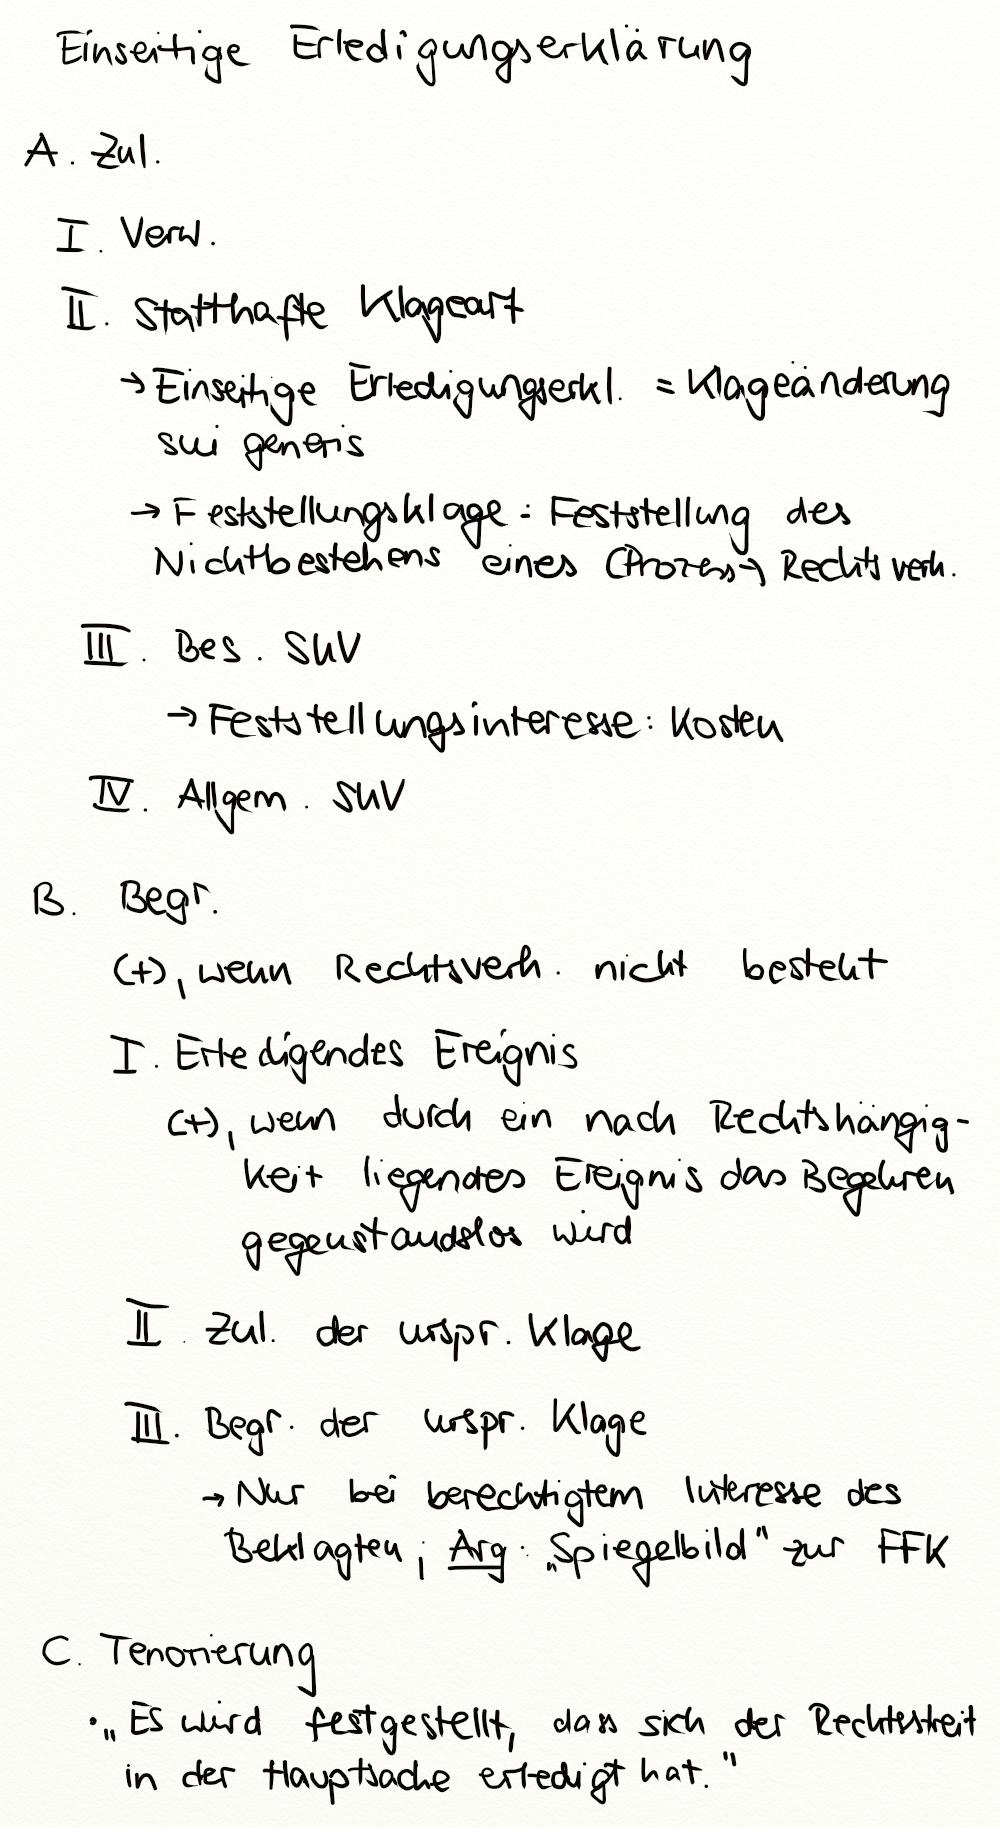 Einseitige Erledigungserklärung
A. Zul.
I. Verw.
II. Statthafte Klageart
→ Einseitige Erledigungserkl. = Klageänderung
sui generis
→ Feststellungsklage: Feststellung des
Nichtbestehens eines (Prozess-) Rechtsverh.
III. Bes. SUV
→ Feststellungsinteresse: Kosten
IV. Allgem. SUV
B. Begr.
(+), wenn Rechtsverh. nicht besteht
I. Erledigendes Ereignis
(+), wenn durch ein nach Rechtshängig-
keit liegendes Ereignis das Begehren
gegenstandslos wird
II. Zul. der urspr. Klage
III. Begr. der urspr. Klage
→ Nur bei berechtigtem Interesse des
Beklagten; Arg: „Spiegelbild" zur FFK
C. Tenorierung
• „Es wird festgestellt, dass sich der Rechtsstreit
in der Hauptsache erledigt hat."